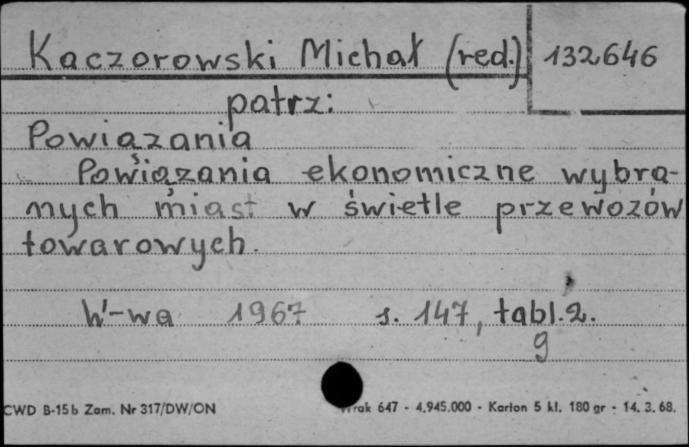 Kaczorowski Michał (red.) 132646
patrz:
Powiązania
Powiązania ekonomiczne wybra-
nych miast w świetle przewozów
towarowych.
W-wa 1967 s. 147, tabl. 2.
9
CWD B-15b Zam. Nr 317/DW/ON 647 - 4.945.000 - Karton 5 kl. 180 gr - 14. 3. 68.